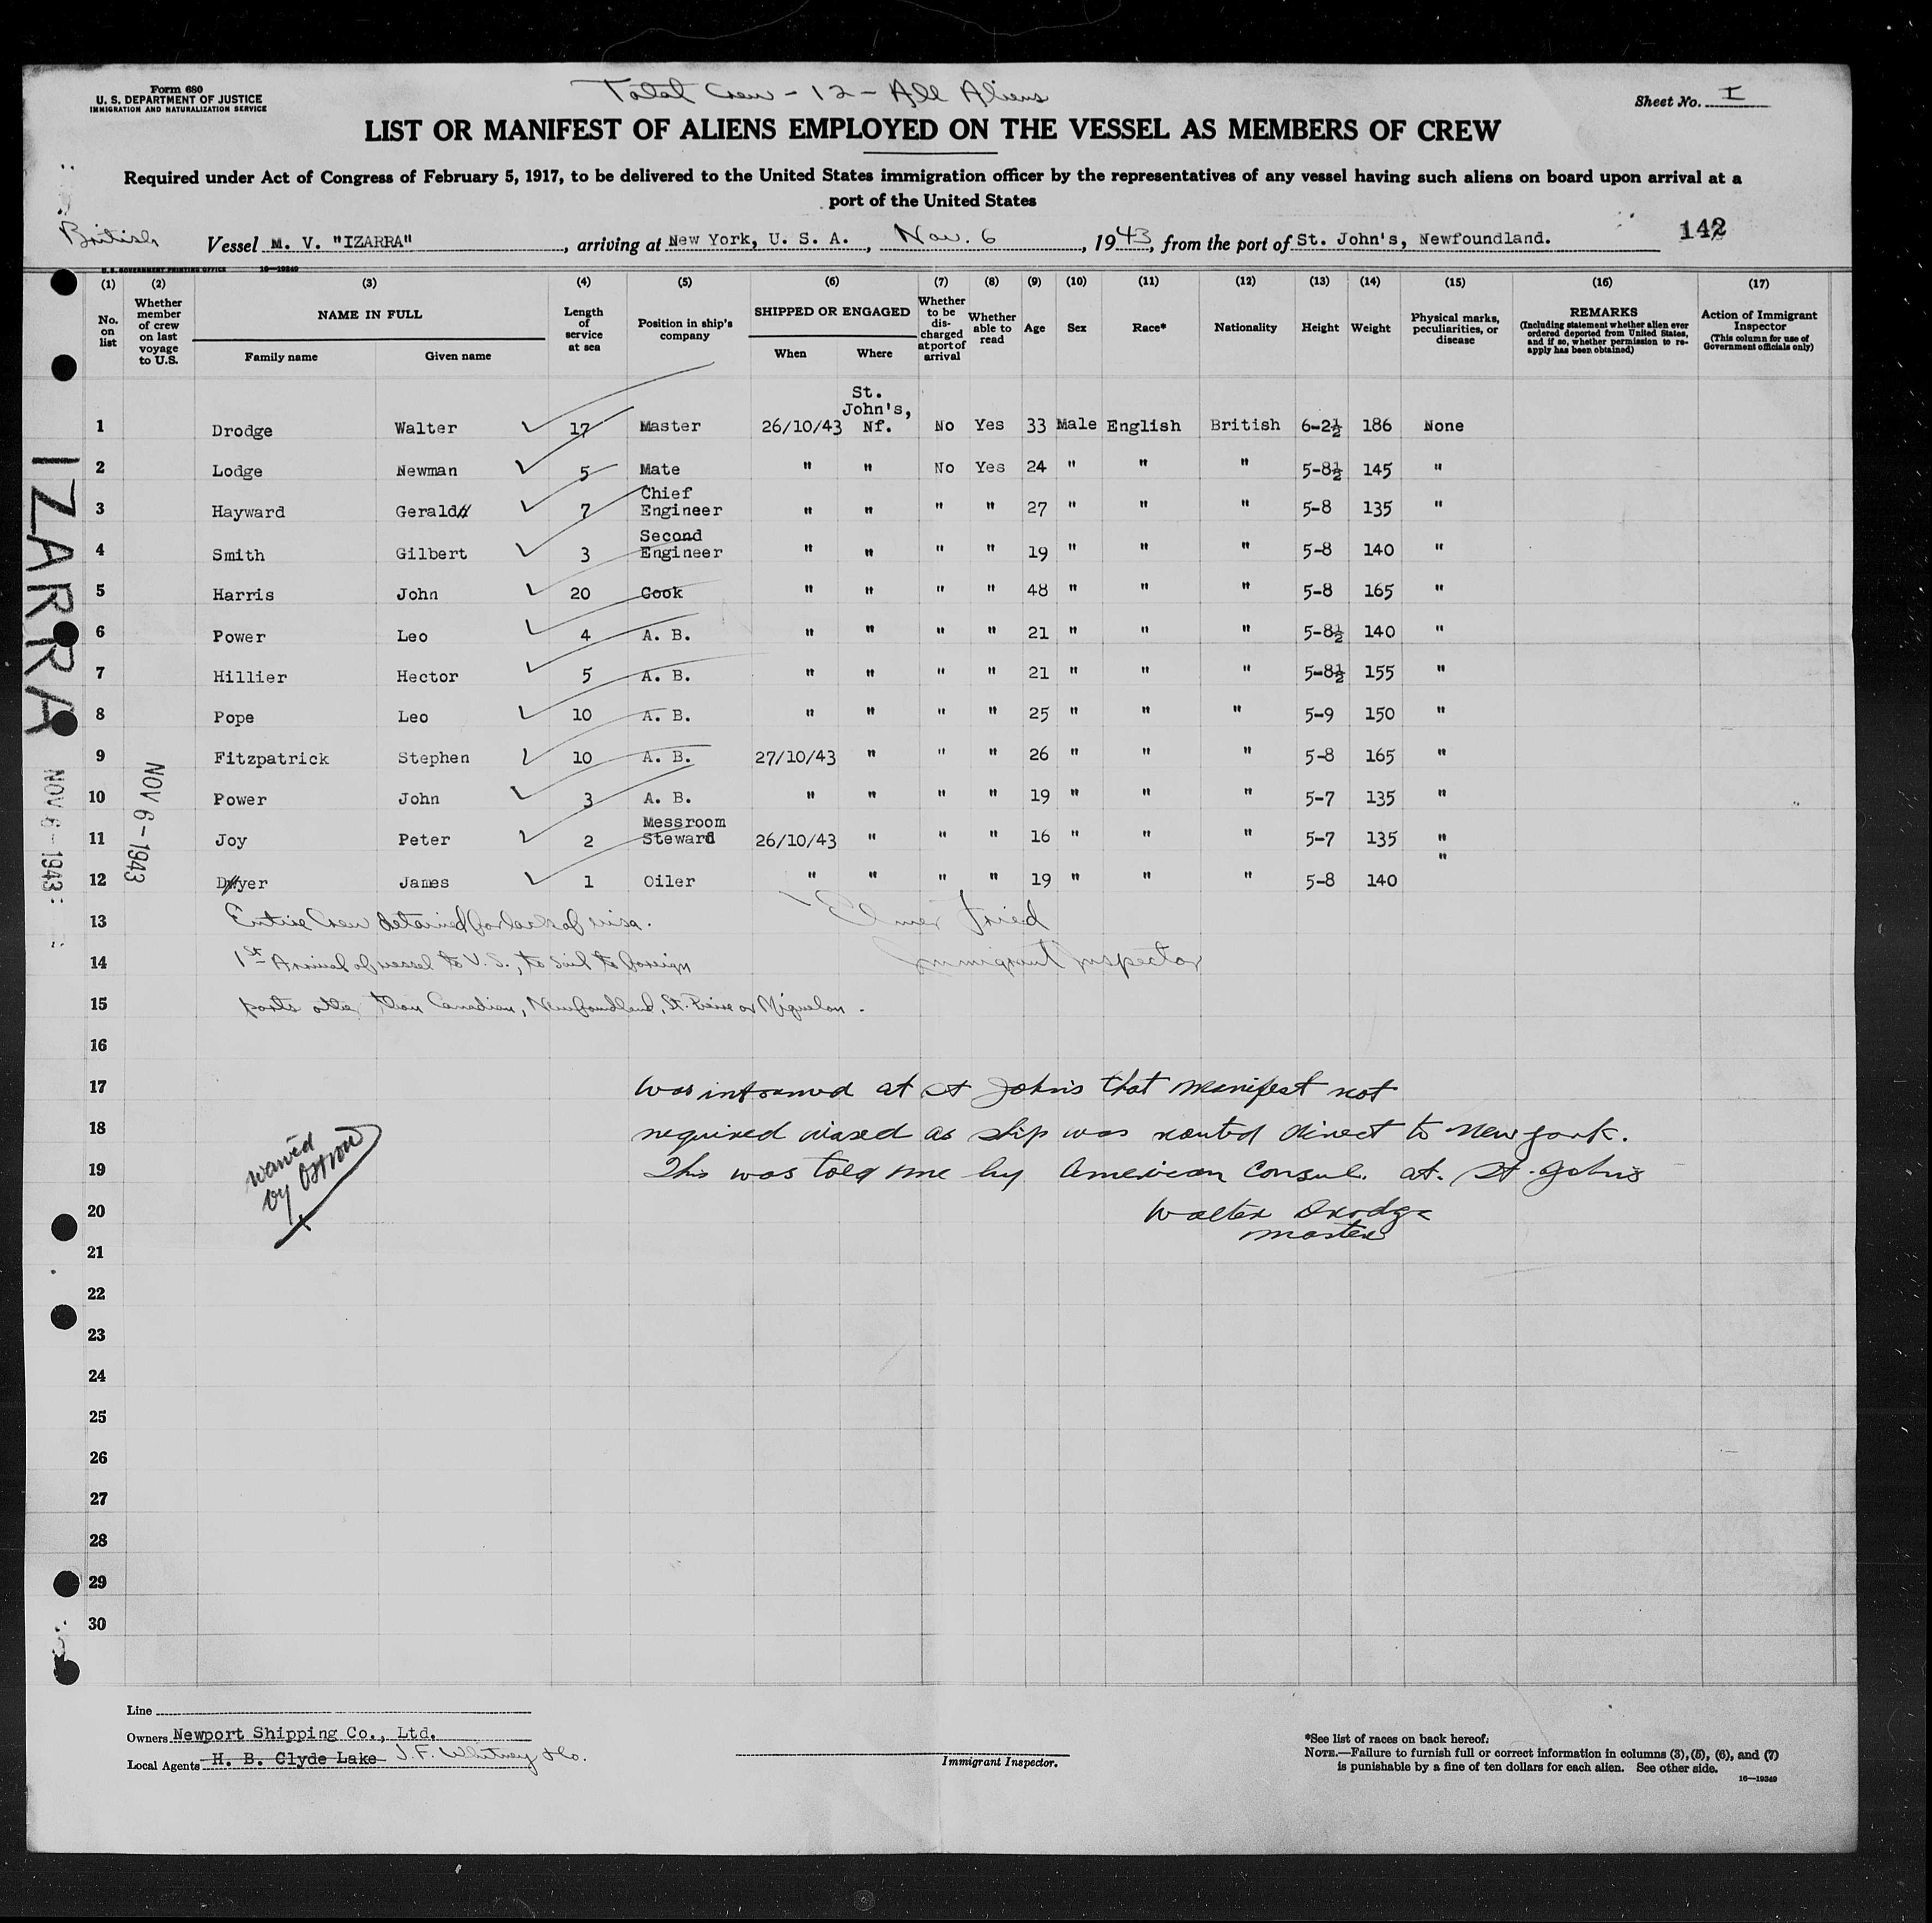 Form 680
U. S. DEPARTMENT OF JUSTICE
IMMIGRATION AND NATURALIZATION SERVICE
Total Crew - 12 - All Aliens
Sheet No. I
LIST OR MANIFEST OF ALIENS EMPLOYED ON THE VESSEL AS MEMBERS OF CREW
Required under Act of Congress of February 5, 1917, to be delivered to the United States immigration officer by the representatives of any vessel having such aliens on board upon arrival at a
port of the United States
British
Vessel M. V. "IZARRA", arriving at New York, U. S. A., Nov. 6, 1943, from the port of St. John's, Newfoundland.
142
U. S. GOVERNMENT PRINTING OFFICE 16—19349
(1) No. on list
(2) Whether member of crew on last voyage to U.S.
(3) NAME IN FULL Family name Given name
(4) Length of service at sea
(5) Position in ship's company
(6) SHIPPED OR ENGAGED When Where
(7) Whether to be discharged at port of arrival
(8) Whether able to read
(9) Age
(10) Sex
(11) Race*
(12) Nationality
(13) Height
(14) Weight
(15) Physical marks, peculiarities, or disease
(16) REMARKS (Including statement whether alien ever ordered deported from United States, and if so, whether permission to re-apply has been obtained)
(17) Action of Immigrant Inspector (This column for use of Government officials only)
1 Drodge Walter 17 Master 26/10/43 St. John's, Nf. No Yes 33 Male English British 6-2½ 186 None
2 Lodge Newman 5 Mate " " No Yes 24 " " " 5-8½ 145 "
3 Hayward Gerald 7 Chief Engineer " " " " 27 " " " 5-8 135 "
4 Smith Gilbert 3 Second Engineer " " " " 19 " " " 5-8 140 "
5 Harris John 20 Cook " " " " 48 " " " 5-8 165 "
6 Power Leo 4 A. B. " " " " 21 " " " 5-8½ 140 "
7 Hillier Hector 5 A. B. " " " " 21 " " " 5-8½ 155 "
8 Pope Leo 10 A. B. " " " " 25 " " " 5-9 150 "
9 Fitzpatrick Stephen 10 A. B. 27/10/43 " " " 26 " " " 5-8 165 "
10 Power John 3 A. B. " " " " 19 " " " 5-7 135 "
11 Joy Peter 2 Messroom Steward 26/10/43 " " " 16 " " " 5-7 135 "
12 Dwyer James 1 Oiler " " " " 19 " " " 5-8 140 "
13 Entire Crew detained for lack of visa. Elmer Fried
14 1st Arrival of vessel to U. S., to sail to foreign Immigrant Inspector
15 ports other than Canadian, Newfoundland, St. Pierre or Miquelon.
16
17 Was informed at St Johns that manifest not
18 required visaed as ship was routed direct to New york.
19 This was told me by American Consul. at. St. Johns
20 Walter Drodge
master
waived
by
21
22
23
24
25
26
27
28
29
30
IZARRA
NOV 6 - 1943
NOV 6 - 1943
Line
Owners Newport Shipping Co., Ltd.
Local Agents H. B. Clyde Lake J. F. Whitney & Co.
Immigrant Inspector.
*See list of races on back hereof.
NOTE.—Failure to furnish full or correct information in columns (3), (5), (6), and (7)
is punishable by a fine of ten dollars for each alien. See other side.
16—19349